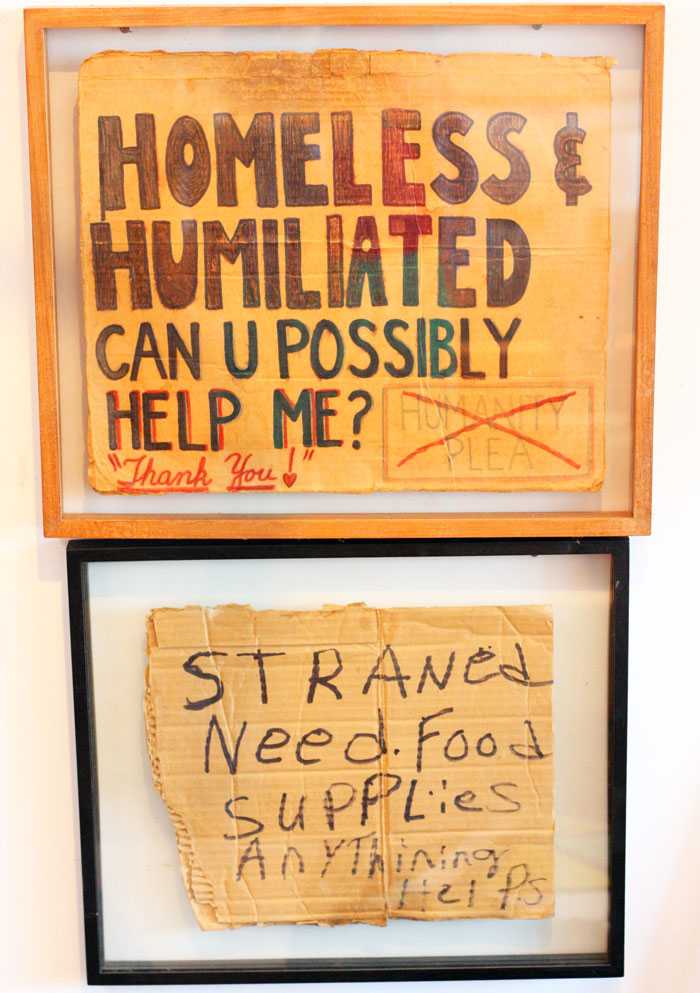 HOMELESS &
HUMILIATED
CAN U POSSIBLY
HELP ME?
"Thank You!"
HUMANITY
PLEA
STRANed
Need.Food
SUPPLies
AnYThining
HelPs